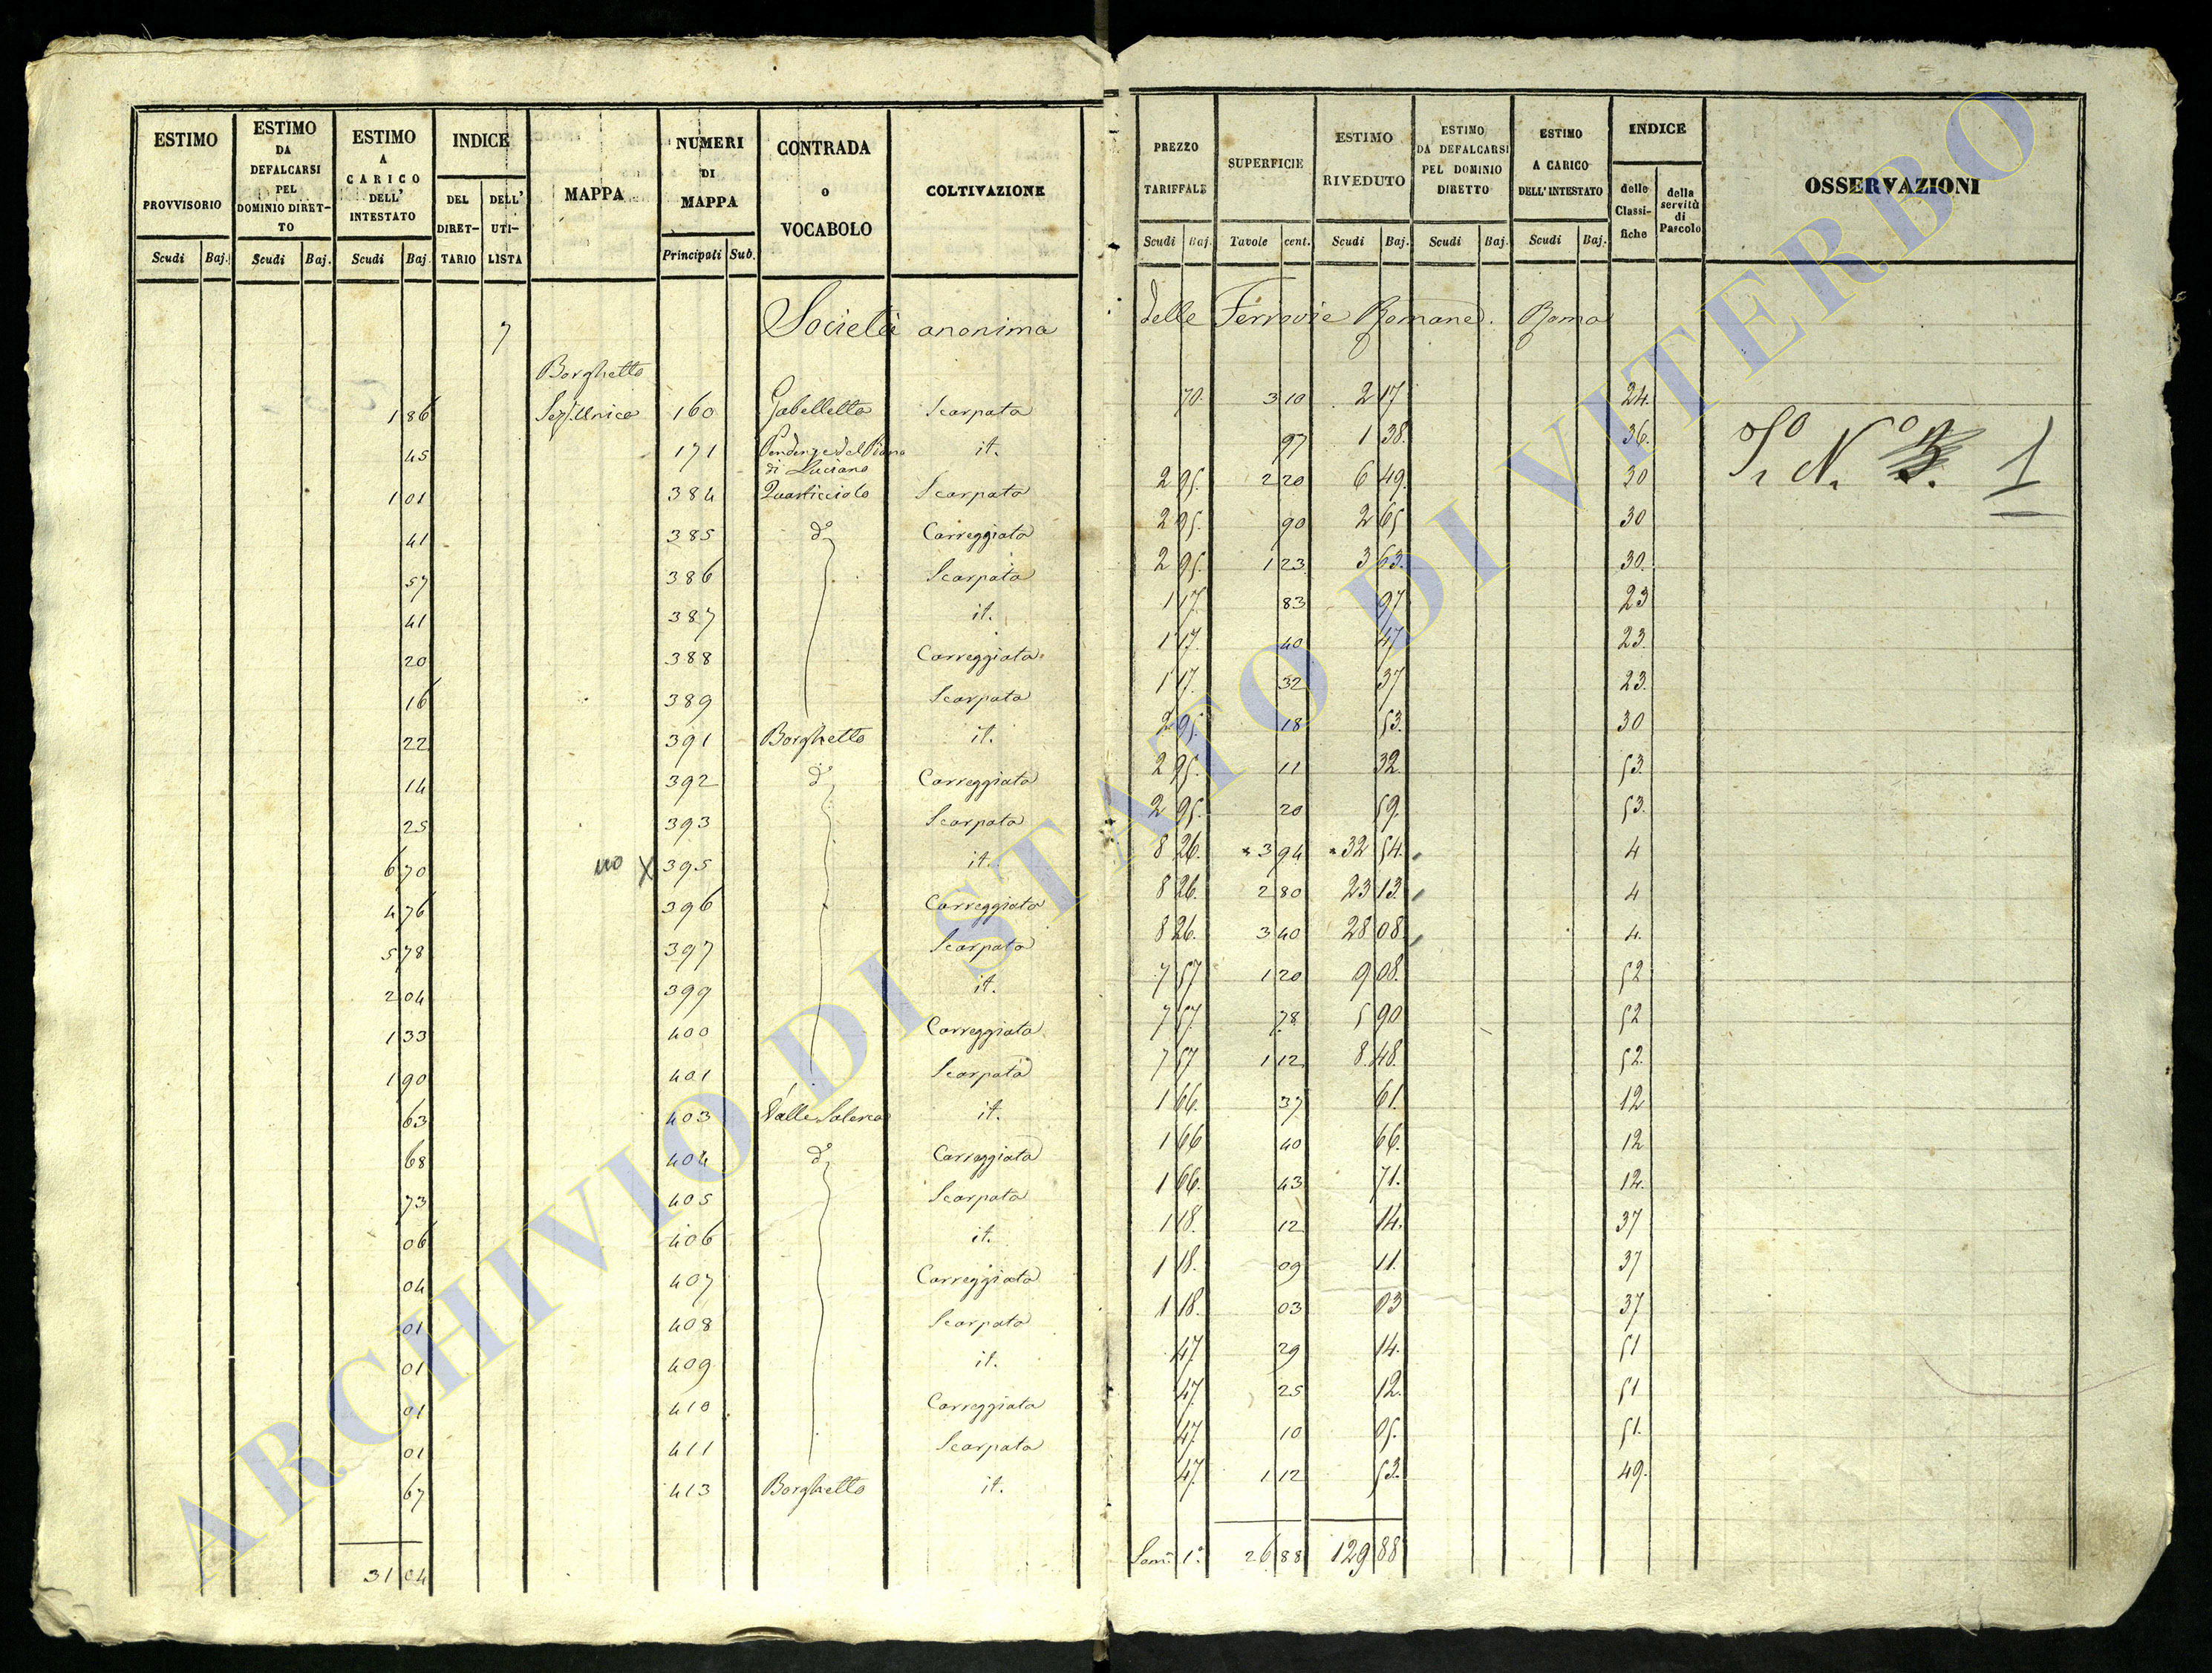 ESTIMO PROVVISORIO Scudi Baj.
ESTIMO DA DEFALCARSI PEL DOMINIO DIRETTO Scudi Baj.
ESTIMO A CARICO DELL' INTESTATO Scudi Baj.
INDICE DEL DIRETTARIO DELL' UTILISTA
MAPPA
NUMERI DI MAPPA Principali Sub.
CONTRADA o VOCABOLO
COLTIVAZIONE
PREZZO TARIFFALE Scudi Baj.
SUPERFICIE Tavole cent.
ESTIMO RIVEDUTO Scudi Baj.
ESTIMO DA DEFALCARSI PEL DOMINIO DIRETTO Scudi Baj.
ESTIMO A CARICO DELL' INTESTATO Scudi Baj.
INDICE delle Classifiche della servitù di Pascolo
OSSERVAZIONI
7 Società anonima delle Ferrovie Romane. Roma
Borghetto
1 86 Sez. Unica 160 Gabelletta Scarpata 70. 3 10 2 17 24.
45 171 Pendenze del Piano di Luciano it. 97 1 38. 36.
1 01 384 Quarticciolo Scarpata 2 95. 2 20 6 49. 30
41 385 d.° Carreggiata 2 95. 90 2 65 30
57 386 Scarpata 2 95. 1 23 3 63. 30.
41 387 it. 1 17. 83 97 23
20 388 Carreggiata 1 17. 40 47 23.
16 389 Scarpata 1 17. 32 37 23.
22 391 Borghetto it. 2 95. 18 53. 30
14 392 d.° Carreggiata 2 95. 11 32 53.
25 393 Scarpata 2 95. 20 59. 53.
6 70 no X 395 it. 8 26. 3 94 32 54. 4
4 76 396 Carreggiata 8 26. 2 80 23 13. 4
5 78 397 Scarpata 8 26. 3 40 28 08. 4.
2 04 399 it. 7 57 1 20 9 08. 52
1 33 400 Carreggiata 7 57 78 5 90 52
1 90 401 Scarpata 7 57 1 12 8.48. 52.
63 403 Valle it. 1 66. 37 61. 12
68 404 d.° Carreggiata 1 66 40 66. 12
73 405 Scarpata 1 66. 43 71. 12.
06 406 it. 1 18. 12 14. 37
04 407 Carreggiata 1 18. 09 11. 37
01 408 Scarpata 1 18. 03 03 37
01 409 it. 47. 29 14. 51
01 410 Carreggiata 47. 25 12. 51
01 411 Scarpata 47. 10 05. 51.
67 413 Borghetto it. 47. 1 12 53. 49.
31 04 Som.ª 1.ª 26 88 129 88
N.° 1
ARCHIVIO DI STATO DI VITERBO